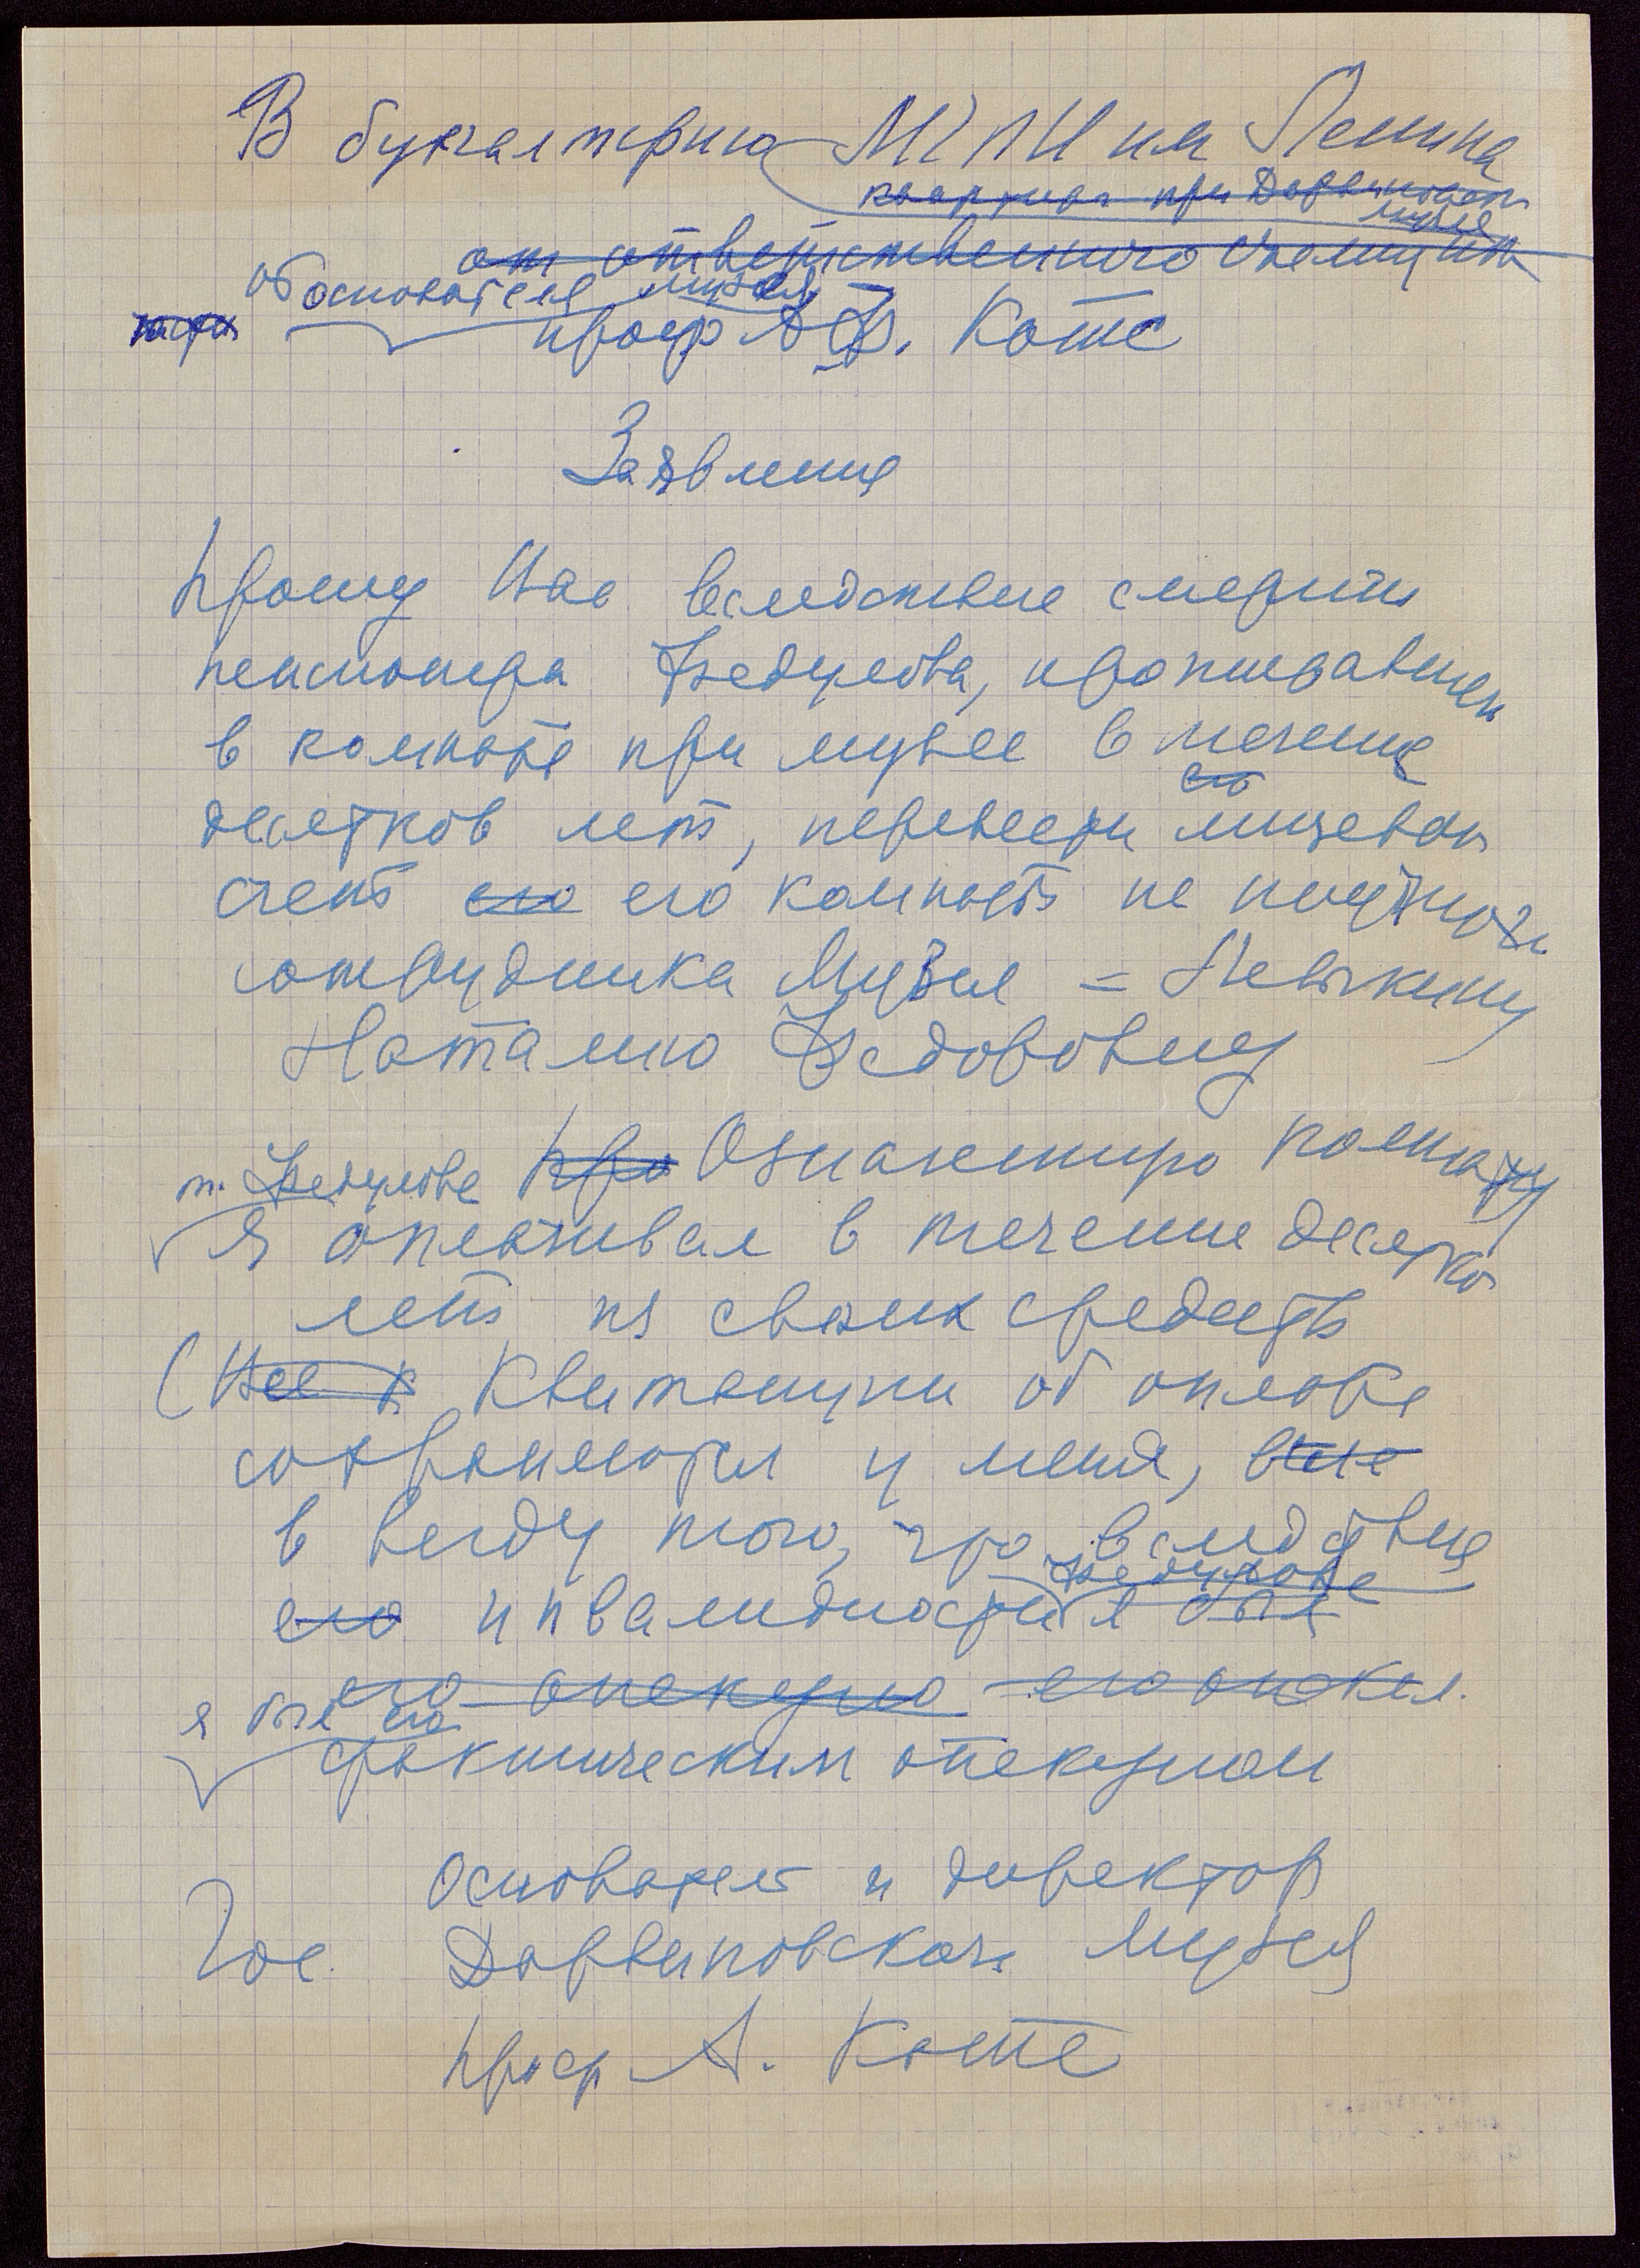 В бухгалтерию МГПИ им Ленина
квартиры при Дарвиновском
музее
от ответственного съемщика
от основателя музея
проф А.Ф. Котс
Заявление
Прошу Вас вследствие смерти
пенсионера Федулова, проживавшего
в комнате при музее в течение
его
десятков лет, перевести лицевой
счет его его комнаты на научного
сотрудника Музея = Левыкину
Наталию Федоровну
т. Федулова Про Означенную комнату
Я оплачивал в течение десятков
лет из своих средств
(Все к Квитанции об оплате
сохраняются у меня,
в виду того, что вследствие
Федулова
его инвалидности я был
его опекуном его опекал.
я был его
фактическим опекуном
Основатель и директор
Гос. Дарвиновского Музея
проф А. Котс